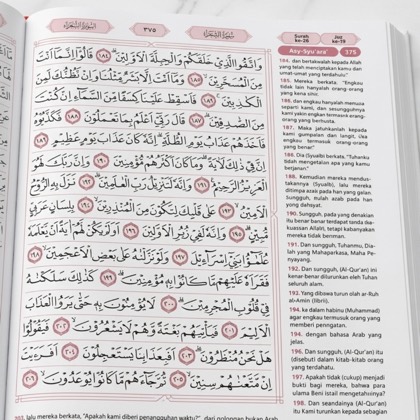 Surah ke-26
Juz ke-19
Asy-Syu'ara'
375
السورة الشعراء
٣٧٥
وَاتَّقُوا الَّذِيْ خَلَقَكُمْ وَالْجِبِلَّةَ الْاَوَّلِيْنَ ۗ ١٨٤ قَالُوْٓا اِنَّمَآ اَنْتَ
مِنَ الْمُسَحَّرِيْنَ ۙ ١٨٥ وَمَآ اَنْتَ اِلَّا بَشَرٌ مِّثْلُنَا وَاِنْ نَّظُنُّكَ لَمِنَ
الْكٰذِبِيْنَ ۚ ١٨٦ فَاَسْقِطْ عَلَيْنَا كِسَفًا مِّنَ السَّمَاۤءِ اِنْ كُنْتَ
مِنَ الصّٰدِقِيْنَ ۗ ١٨٧ قَالَ رَبِّيْٓ اَعْلَمُ بِمَا تَعْمَلُوْنَ ١٨٨ فَكَذَّبُوْهُ
فَاَخَذَهُمْ عَذَابُ يَوْمِ الظُّلَّةِ ۗ اِنَّهٗ كَانَ عَذَابَ يَوْمٍ عَظِيْمٍ ١٨٩
اِنَّ فِيْ ذٰلِكَ لَاٰيَةً ۗ وَمَا كَانَ اَكْثَرُهُمْ مُّؤْمِنِيْنَ ١٩٠ وَاِنَّ رَبَّكَ لَهُوَ
الْعَزِيْزُ الرَّحِيْمُ ۔ ١٩١ وَاِنَّهٗ لَتَنْزِيْلُ رَبِّ الْعٰلَمِيْنَ ۗ ١٩٢ نَزَلَ بِهِ الرُّوْحُ
الْاَمِيْنُ ۙ ١٩٣ عَلٰى قَلْبِكَ لِتَكُوْنَ مِنَ الْمُنْذِرِيْنَ ۙ ١٩٤ بِلِسَانٍ عَرَبِيٍّ
مُّبِيْنٍ ۗ ١٩٥ وَاِنَّهٗ لَفِيْ زُبُرِ الْاَوَّلِيْنَ ١٩٦ اَوَلَمْ يَكُنْ لَّهُمْ اٰيَةً اَنْ يَّعْلَمَهٗ
عُلَمٰۤؤُا بَنِيْٓ اِسْرَاۤءِيْلَ ۗ ١٩٧ وَلَوْ نَزَّلْنٰهُ عَلٰى بَعْضِ الْاَعْجَمِيْنَ ۙ ١٩٨
فَقَرَاَهٗ عَلَيْهِمْ مَّا كَانُوْا بِهٖ مُؤْمِنِيْنَ ۗ ١٩٩ كَذٰلِكَ سَلَكْنٰهُ
فِيْ قُلُوْبِ الْمُجْرِمِيْنَ ۗ ٢٠٠ لَا يُؤْمِنُوْنَ بِهٖ حَتّٰى يَرَوُا الْعَذَابَ
الْاَلِيْمَ ۙ ٢٠١ فَيَأْتِيَهُمْ بَغْتَةً وَّهُمْ لَا يَشْعُرُوْنَ ۙ ٢٠٢ فَيَقُوْلُوْا
هَلْ نَحْنُ مُنْظَرُوْنَ ۗ ٢٠٣ اَفَبِعَذَابِنَا يَسْتَعْجِلُوْنَ ٢٠٤ اَفَرَءَيْتَ
اِنْ مَّتَّعْنٰهُمْ سِنِيْنَ ۙ ٢٠٥ ثُمَّ جَاۤءَهُمْ مَّا كَانُوْا يُوْعَدُوْنَ ۙ ٢٠٦
184. dan bertakwalah kepada Allah
yang telah menciptakan kamu dan
umat-umat yang terdahulu."
185. Mereka berkata, "Engkau
tidak lain hanyalah orang-orang
yang kena sihir.
186. dan engkau hanyalah manusia
seperti kami, dan sesungguhnya
kami yakin engkau termasuk orang-
orang yang berdusta.
187. Maka jatuhkanlah kepada
kami gumpalan dari langit. Jika
engkau termasuk orang-orang
yang benar."
188. Dia (Syuaib) berkata, "Tuhanku
lebih mengetahui apa yang kamu
kerjakan."
189. Kemudian mereka mendus-
takannya (Syuaib), lalu mereka
ditimpa azab pada hari yang gelap.
Sungguh, itulah azab pada hari
yang dahsyat.
190. Sungguh, pada yang demikian
itu benar-benar terdapat tanda
191. Dan sungguh, Tuhanmu, Dia-
lah Yang Mahaperkasa, Maha Pe-
nyayang.
192. Dan sungguh, (Al-Qur'an) ini
benar-benar diturunkan oleh Tuhan
seluruh alam.
193. Yang dibawa turun oleh ar-Ruh
al-Amin (Jibril).
194. ke dalam hatimu (Muhammad)
agar engkau termasuk orang yang
memberi peringatan.
195. dengan bahasa Arab yang
jelas.
196. Dan sungguh, (Al-Qur'an) itu
(disebut) dalam kitab-kitab orang
yang terdahulu.
197. Apakah tidak (cukup) menjadi
bukti bagi mereka, bahwa para
ulama Bani Israil mengetahuinya?
198. Dan seandainya (Al-Qur'an)
itu Kami turunkan kepada sebagian
203. lalu mereka berkata, "Apakah kami diberi penangguhan waktu?"